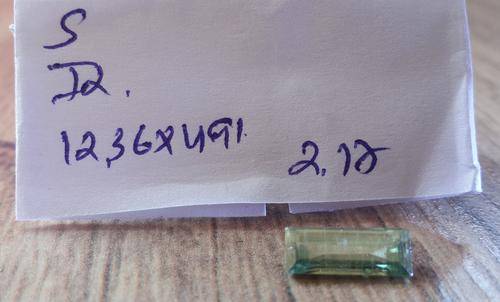 S
I2.
12,36x491
2.12